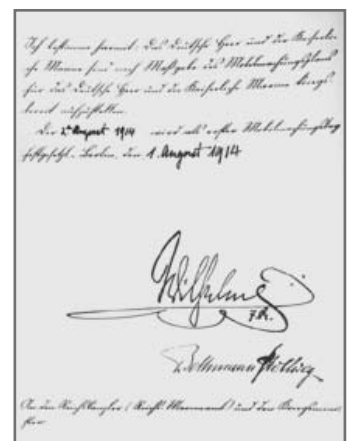 Ich bestimme hiermit: Das Deutsche Heer und die Kaiserli-
che Marine sind nach Maßgabe des Mobilmachungsplans
für das Deutsche Heer und die Kaiserliche Marine kriegs-
bereit aufzustellen.
Der 2te August 1914 wird als erster Mobilmachungstag
festgesetzt. Berlin, den 1. August 1914
Wilhelm
I.R.
v. Bethmann Hollweg
An den Reichskanzler (Reichs-Marineamt) und den Kriegsminis-
ter